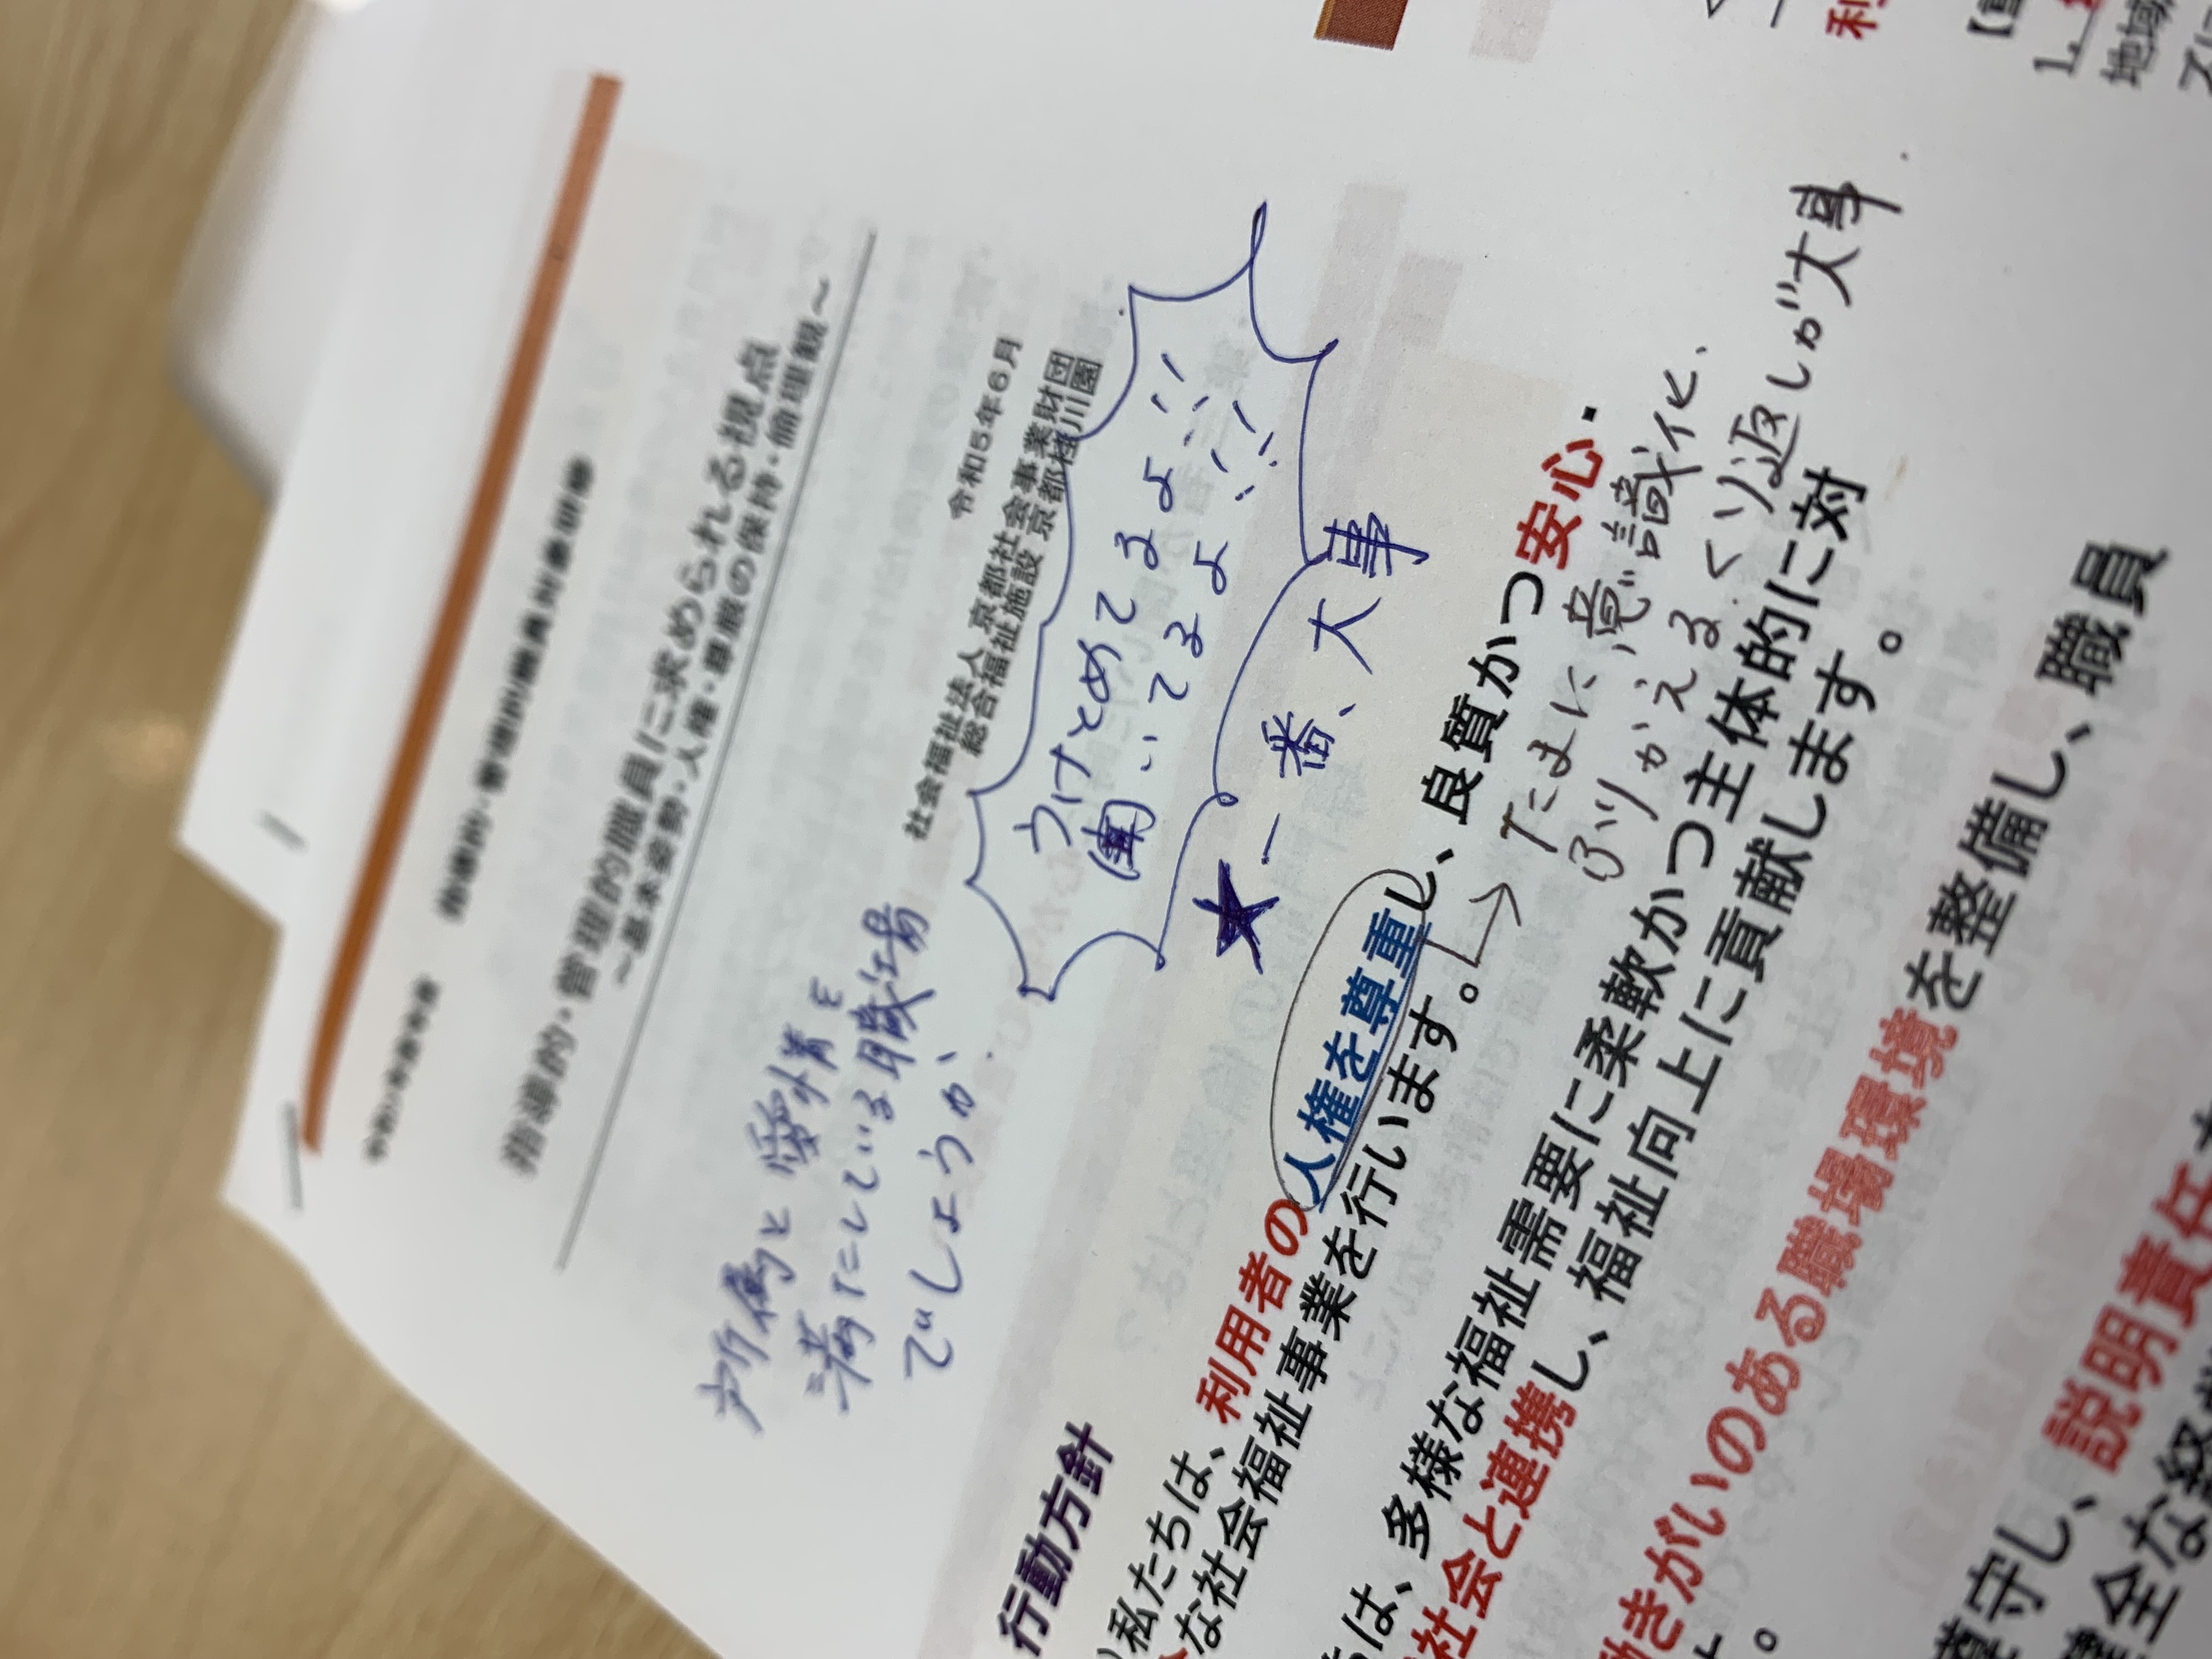 令和5年度
指導的・管理的職員対象研修
指導的・管理的職員に求められる視点
～基本姿勢・人権・尊厳の保持・倫理観～
令和5年6月
社会福祉法人 京都社会事業財団
総合福祉施設 京都桂川園
所属と愛情を
満たしている職場
でしょうか、
うけとめてるよ
聞いてるよ
★一番、大事
行動方針
私たちは、利用者の人権を尊重し、良質かつ安心・
な社会福祉事業を行います。
→たまに意識化、
ふりかえるくり返しが大事
は、多様な福祉需要に柔軟かつ主体的に対
社会と連携し、福祉向上に貢献します。
働きがいのある職場環境を整備し、職員
遵守し、説明責任
健全な経
1.
地域